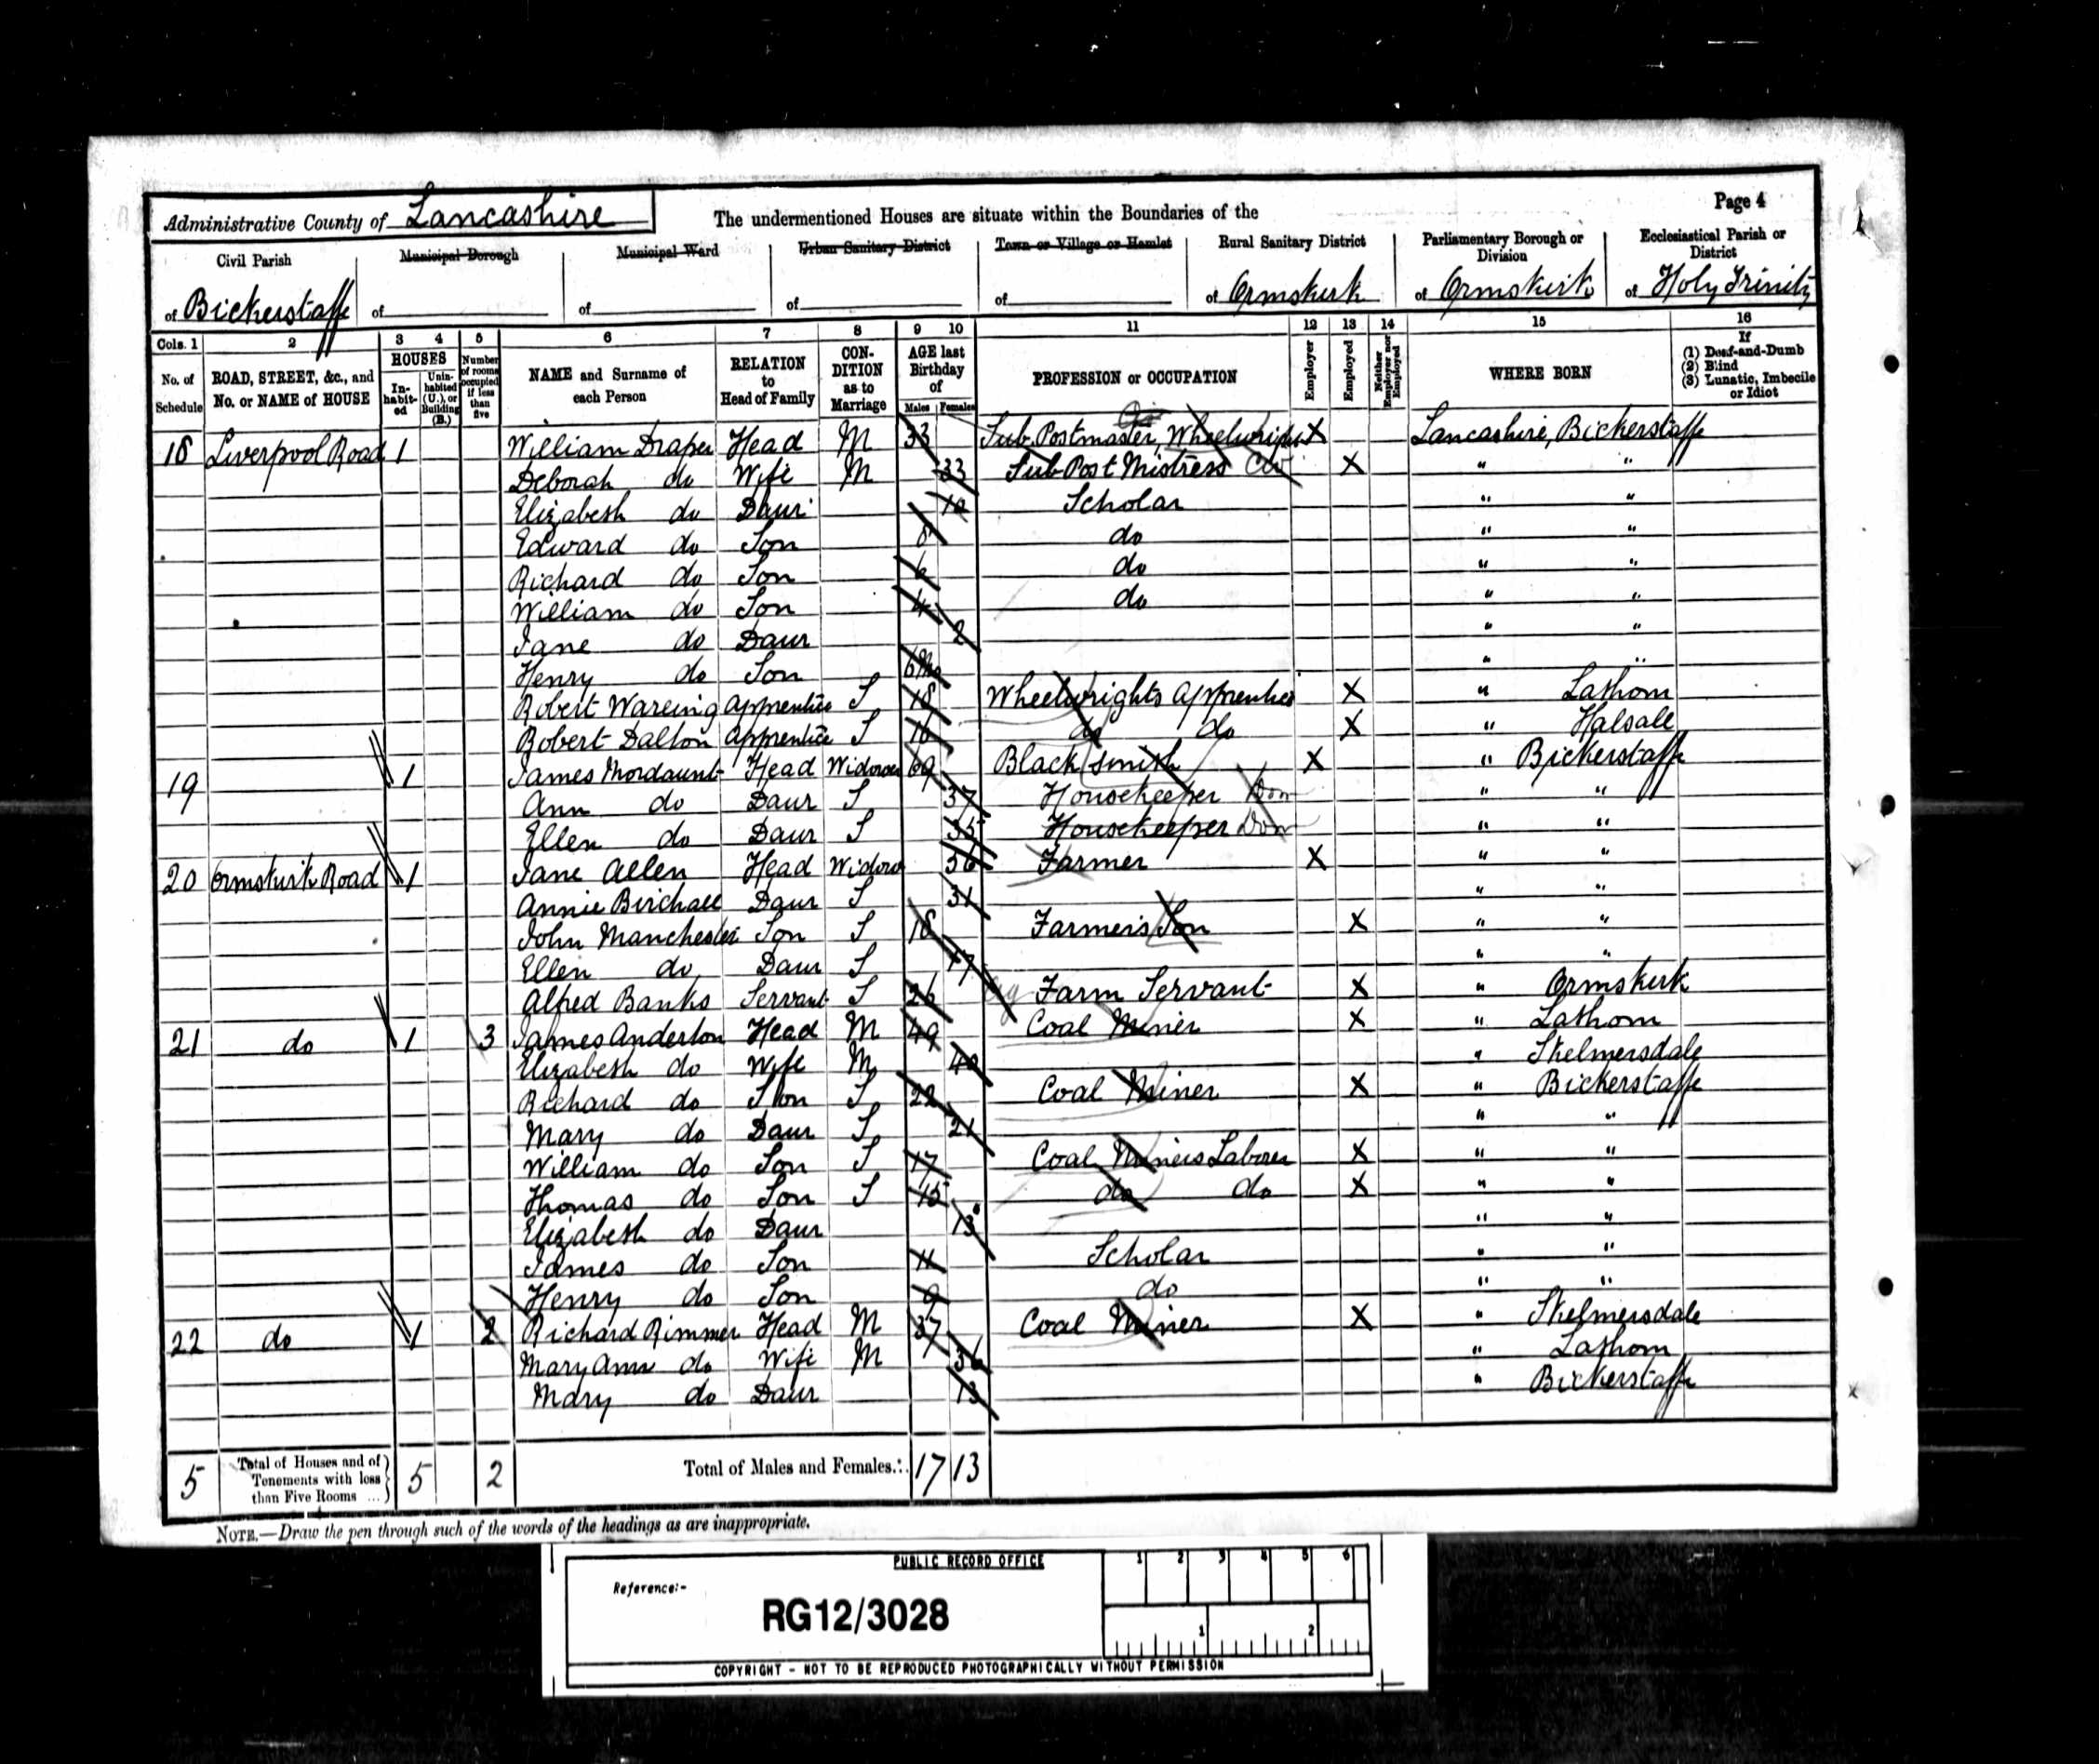 Administrative County of Lancashire The undermentioned Houses are situate within the Boundaries of the Page 4
Civil Parish Municipal Borough Municipal Ward Urban Sanitary District Town or Village or Hamlet Rural Sanitary District Parliamentary Borough or Division Ecclesiastical Parish or District
of Bickerstaffe of of of of of Ormskirk of Ormskirk of Holy Trinity
Cols. 1 2 3 4 5 6 7 8 9 10 11 12 13 14 15 16
No. of Schedule ROAD, STREET, &c., and No. or NAME of HOUSE HOUSES Inhabited Uninhabited (U.), or Building (B.) Number of rooms occupied if less than five NAME and Surname of each Person RELATION to Head of Family CONDITION as to Marriage AGE last Birthday of Males Females PROFESSION or OCCUPATION Employer Employed Neither Employer nor Employed WHERE BORN If (1) Deaf-and-Dumb (2) Blind (3) Lunatic, Imbecile or Idiot
18 Liverpool Road 1 William Draper Head M 33 Sub Postmaster, Wheelwright X Lancashire, Bickerstaffe
Deborah do Wife M 33 Sub Post Mistress Civ X " "
Elizabeth do Daur 10 Scholar " "
Edward do Son 8 do " "
Richard do Son 6 do " "
William do Son 4 do " "
Jane do Daur 2 " "
Henry do Son 6Mo " "
Robert Wareing Apprentice S 18 Wheelwrights Apprentice X " Lathom
Robert Dalton Apprentice S 16 do do X " Halsall
19 1 James Mordaunt Head Widower 69 Black Smith X " Bickerstaffe
Ann do Daur S 37 Housekeeper Dom " "
Ellen do Daur S 35 Housekeeper Dom " "
20 Ormskirk Road 1 Jane Allen Head Widow 56 Farmer X " "
Annie Birchall Daur S 31 " "
John Manchester Son S 18 Farmer's Son X " "
Ellen do Daur S 17 " "
Alfred Banks Servant S 26 Ag Farm Servant X " Ormskirk
21 do 1 3 James Anderton Head M 49 Coal Miner X " Lathom
Elizabeth do Wife M 40 " Skelmersdale
Richard do Son S 22 Coal Miner X " Bickerstaffe
Mary do Daur S 21 " "
William do Son S 17 Coal Miners Laborer X " "
Thomas do Son S 15 do do X " "
Elizabeth do Daur 13 " "
James do Son 11 Scholar " "
Henry do Son 9 do " "
22 do 1 2 Richard Rimmer Head M 37 Coal Miner X " Skelmersdale
Mary Ann do Wife M 36 " Lathom
Mary do Daur 13 " Bickerstaffe
5 Total of Houses and of Tenements with less than Five Rooms ... 5 2 Total of Males and Females.. 17 13
NOTE.—Draw the pen through such of the words of the headings as are inappropriate.
PUBLIC RECORD OFFICE 1 2 3 4 5 6
Reference:-
RG12/3028 1 2
COPYRIGHT - NOT TO BE REPRODUCED PHOTOGRAPHICALLY WITHOUT PERMISSION